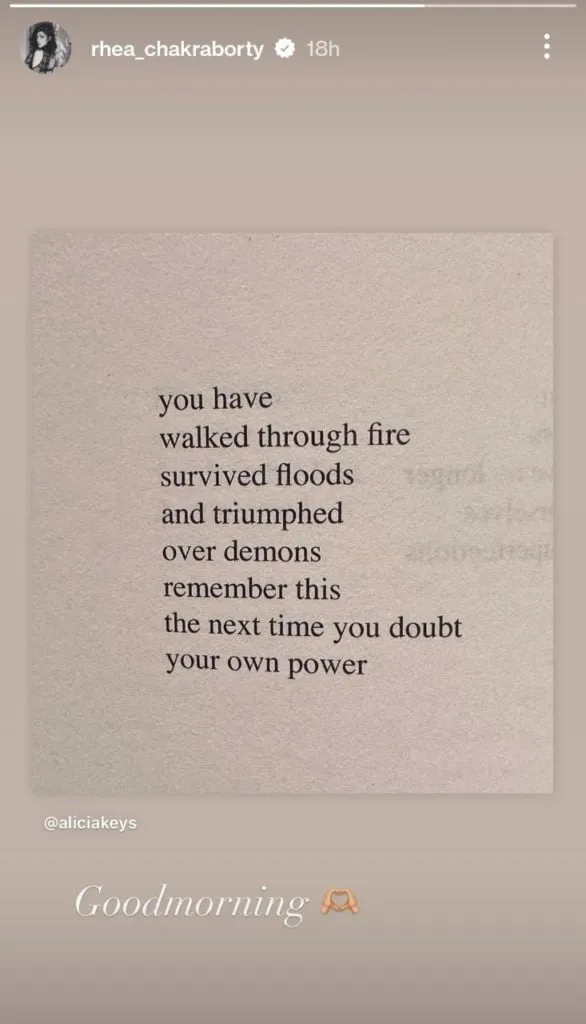 rhea_chakraborty 18h
you have
walked through fire
survived floods
and triumphed
over demons
remember this
the next time you doubt
your own power
@aliciakeys
Goodmorning 🫶